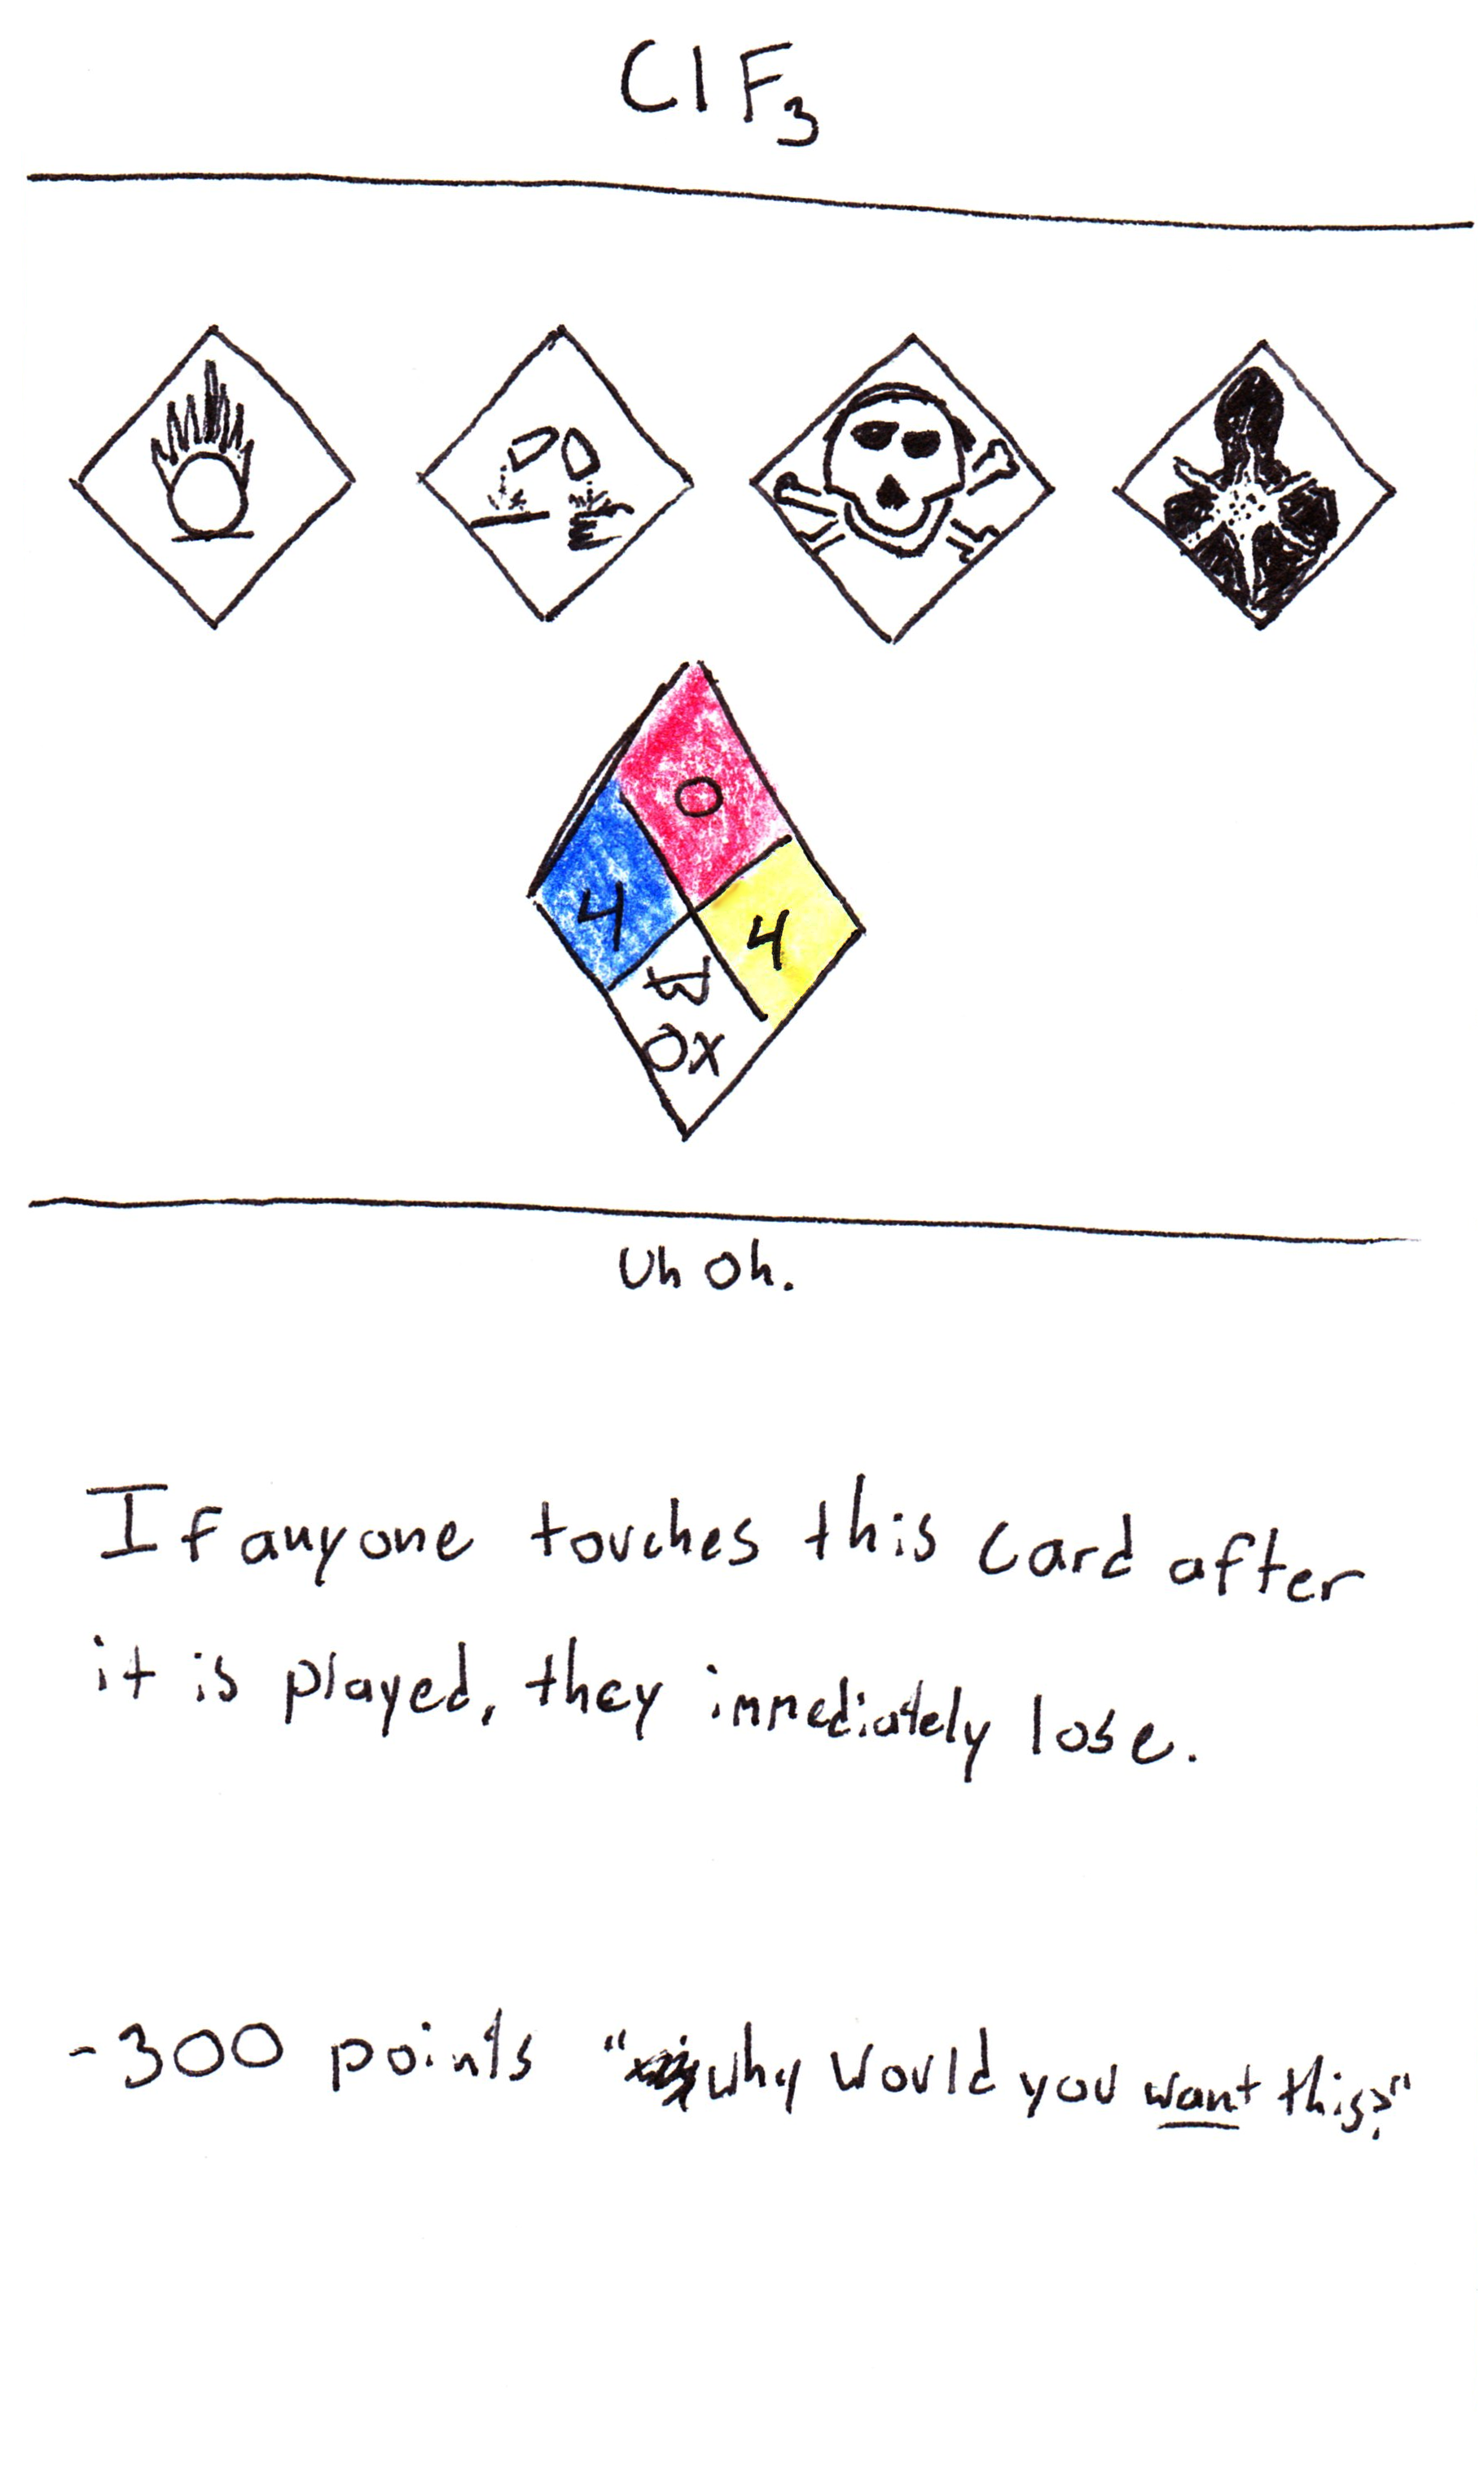 ClF₃
0
4 4
W
OX
Uh Oh.
If anyone touches this card after
it is played, they immediately lose.
-300 points "why would you want this?"